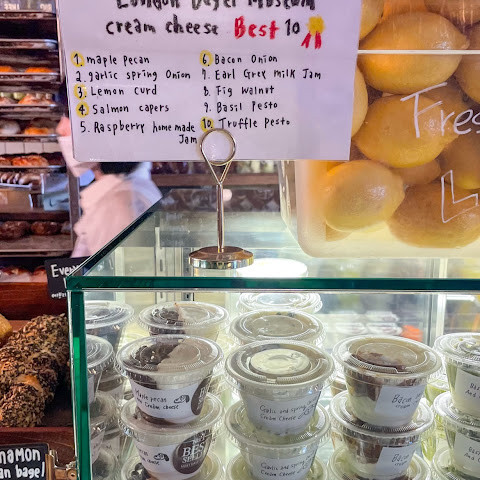 London Bagel Museum
cream cheese Best 10
1. maple pecan
2. garlic spring onion
3. Lemon curd
4. Salmon capers
5. Raspberry homemade
Jam
6. Bacon Onion
7. Earl Grey milk Jam
8. Fig walnut
9. Basil Pesto
10. Truffle Pesto
Fres
L
Even
Maple pecan
Cream cheese
Garlic and spring
Bacon
nnamon
an bagel